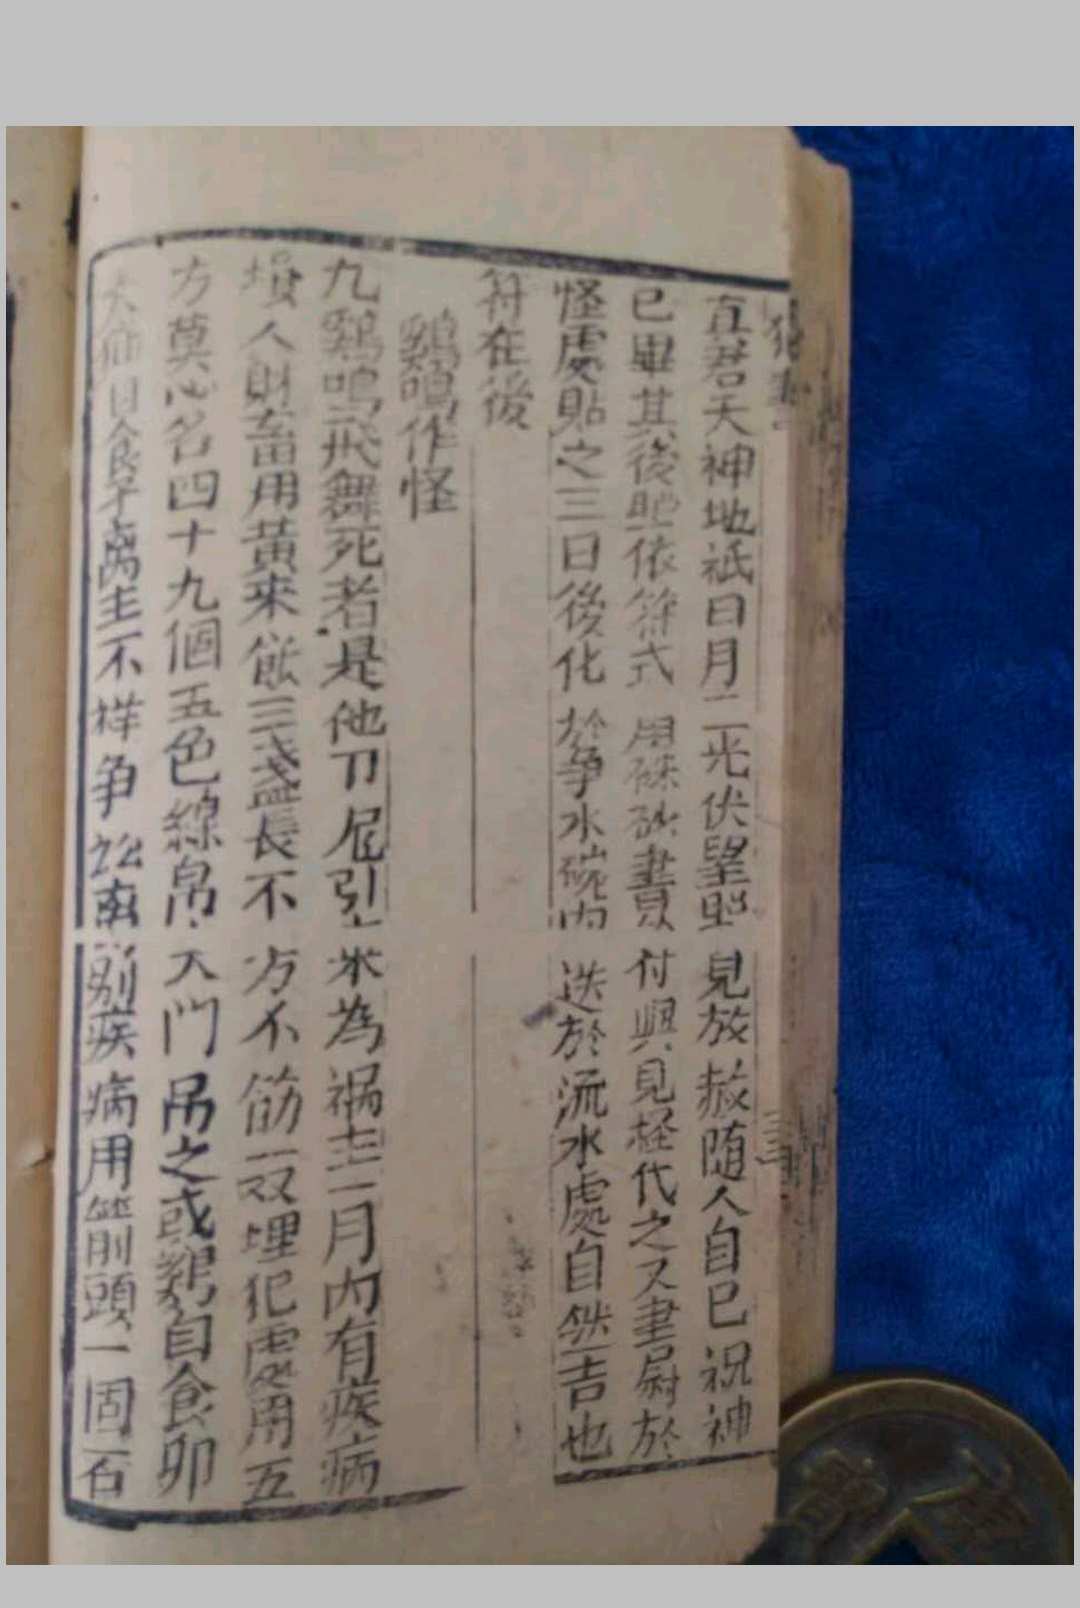 真君天神地祇日月二光伏望照見放赦随人自已祝神
已畢其後 依符式用硃砂書 付與見 代之又書 於
怪處貼之三日後化於爭水碗内送於流水處自然吉也
符在後
鷄鳴作怪
九鷄鳴 飛舞死者是他刀 引 來為禍 一月内有疾病
損人財畜用黃來飯三盞長不方不筋一双埋犯處用五
方莫心名四十九個五色線帛 天門吊之或鷄自食卵
日食子 主不祥爭訟 別疾病用箭頭一固石